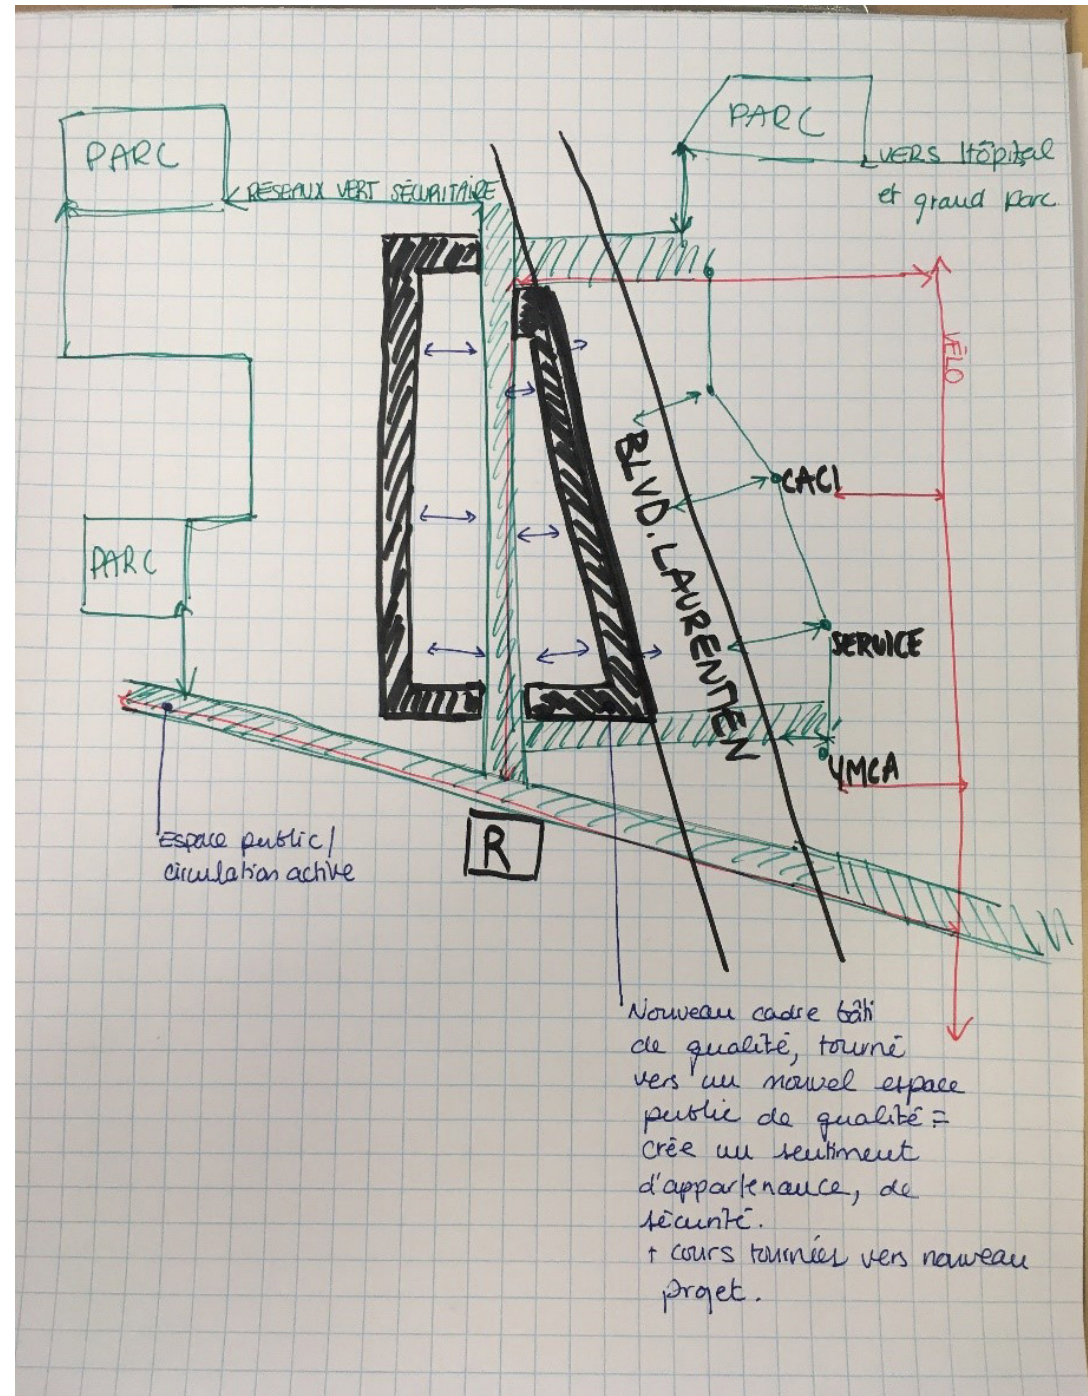 PARC
PARC
VERS Hôpital
et grand parc
RÉSEAUX VERT SÉCURITAIRE
VÉLO
BLVD. LAURENTIEN
CACI
PARC
SERVICE
YMCA
R
Espace public/
circulation active
Nouveau cadre bâti
de qualité, tourné
vers un nouvel espace
public de qualité =
crée un sentiment
d'appartenance, de
sécurité.
+ cours tournées vers nouveau
projet.